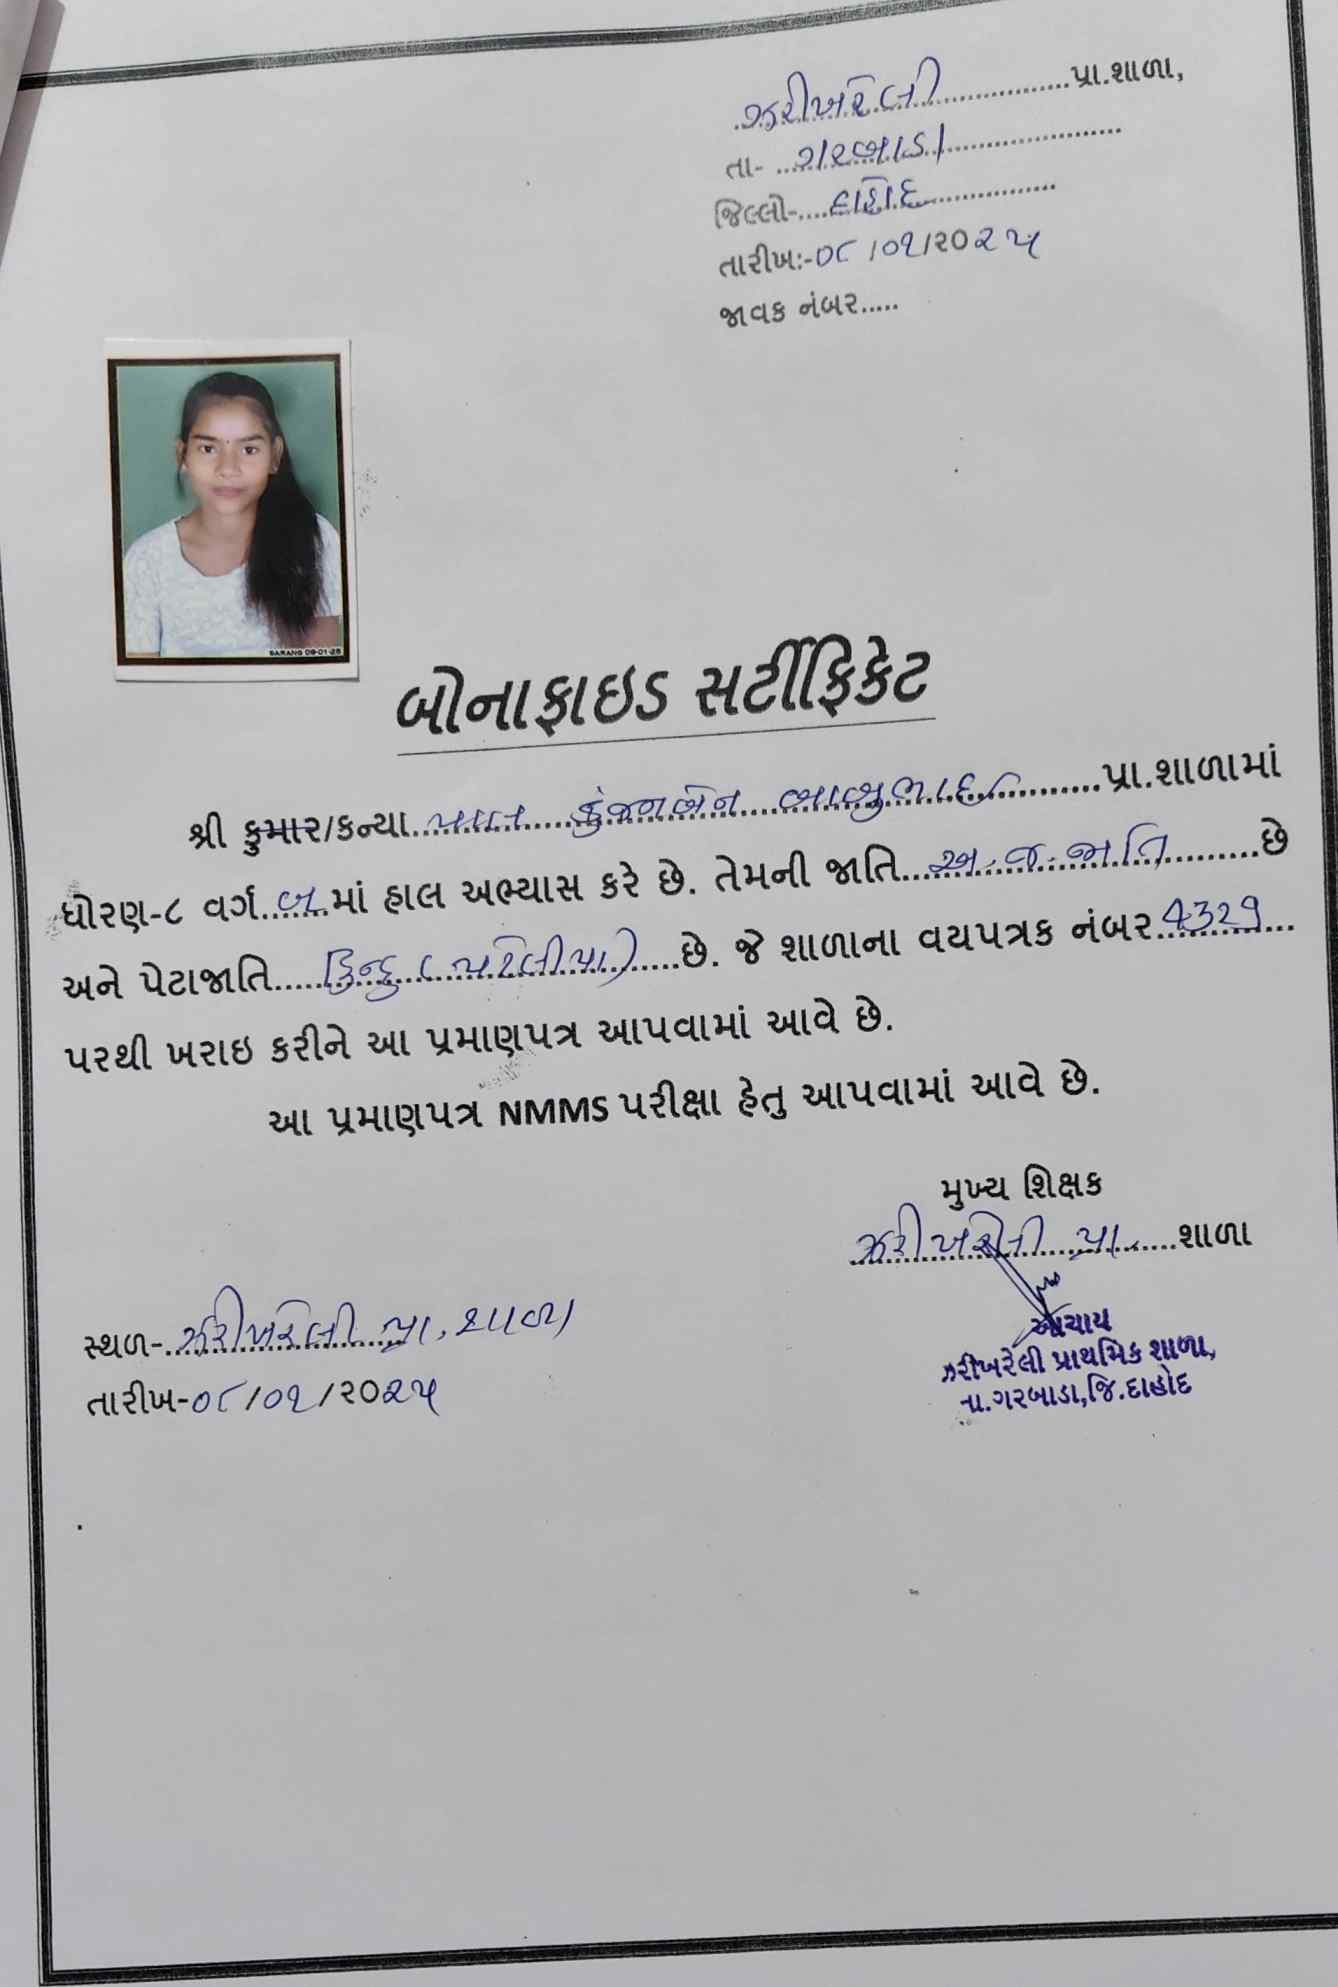 ઝરીખરેલી પ્રા.શાળા,
તા- ગરબાડા
જિલ્લો- દાહોદ
તારીખ:-૦૮/૦૧/૨૦૨૫
જાવક નંબર.....
SARANG 09-01-25
બોનાફાઇડ સર્ટીફિકેટ
શ્રી કુમાર/કન્યા કુંજનબેન બાબુભાઇ પ્રા.શાળામાં
ધોરણ-૮ વર્ગ બ માં હાલ અભ્યાસ કરે છે. તેમની જાતિ અ.જ.જાતિ છે
અને પેટાજાતિ હિન્દુ (પટેલીયા) છે. જે શાળાના વયપત્રક નંબર
પરથી ખરાઇ કરીને આ પ્રમાણપત્ર આપવામાં આવે છે.
આ પ્રમાણપત્ર NMMS પરીક્ષા હેતુ આપવામાં આવે છે.
મુખ્ય શિક્ષક
ઝરીખરેલી પ્રા. શાળા
આચાર્ય
ઝરીખરેલી પ્રાથમિક શાળા,
તા.ગરબાડા,જિ.દાહોદ
સ્થળ- ઝરીખરેલી પ્રા. શાળા
તારીખ-૦૮/૦૧/૨૦૨૫